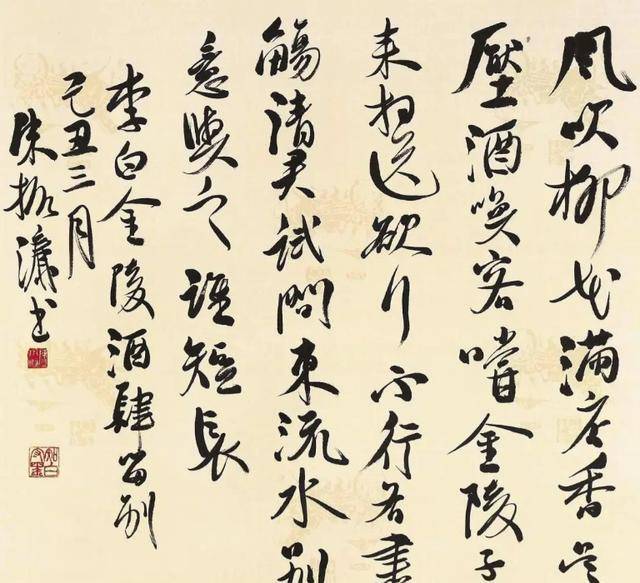 風吹柳花满店香吴
壓酒喚客嚐金陵子
来相送欲行不行各盡
觴请君試問東流水别
意與之誰短長
李白金陵酒肆留别
己丑三月
陈振濂书